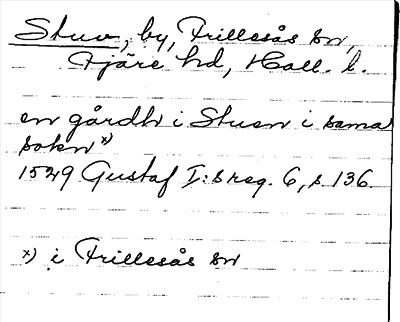 Stuv, by, Frillesås sn,
Fjäre hd, Hall. l.
en gårdh i Stuen i sama
sokn x)
1529 Gustaf I:s reg. 6, s. 136.
x) i Frillesås sn